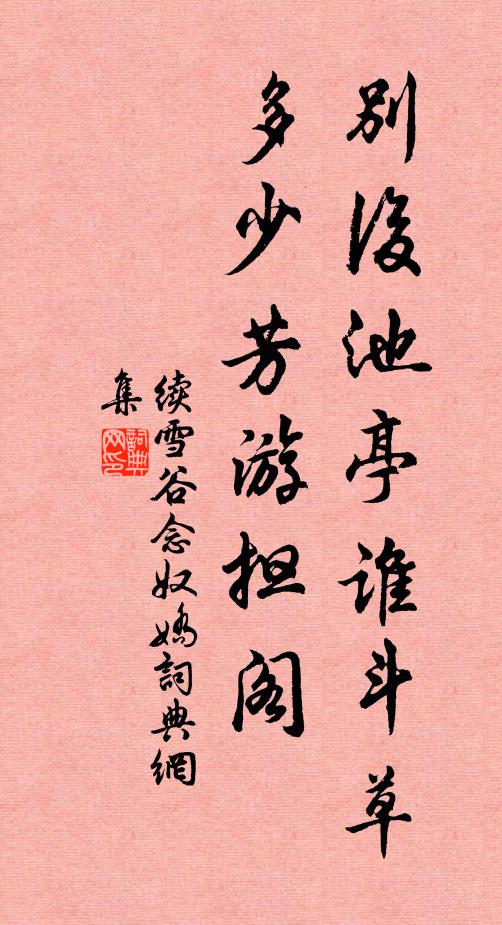 别後池亭谁斗草
多少芳游担阁
续雪谷念奴嬌詞典網
集
詞典網印